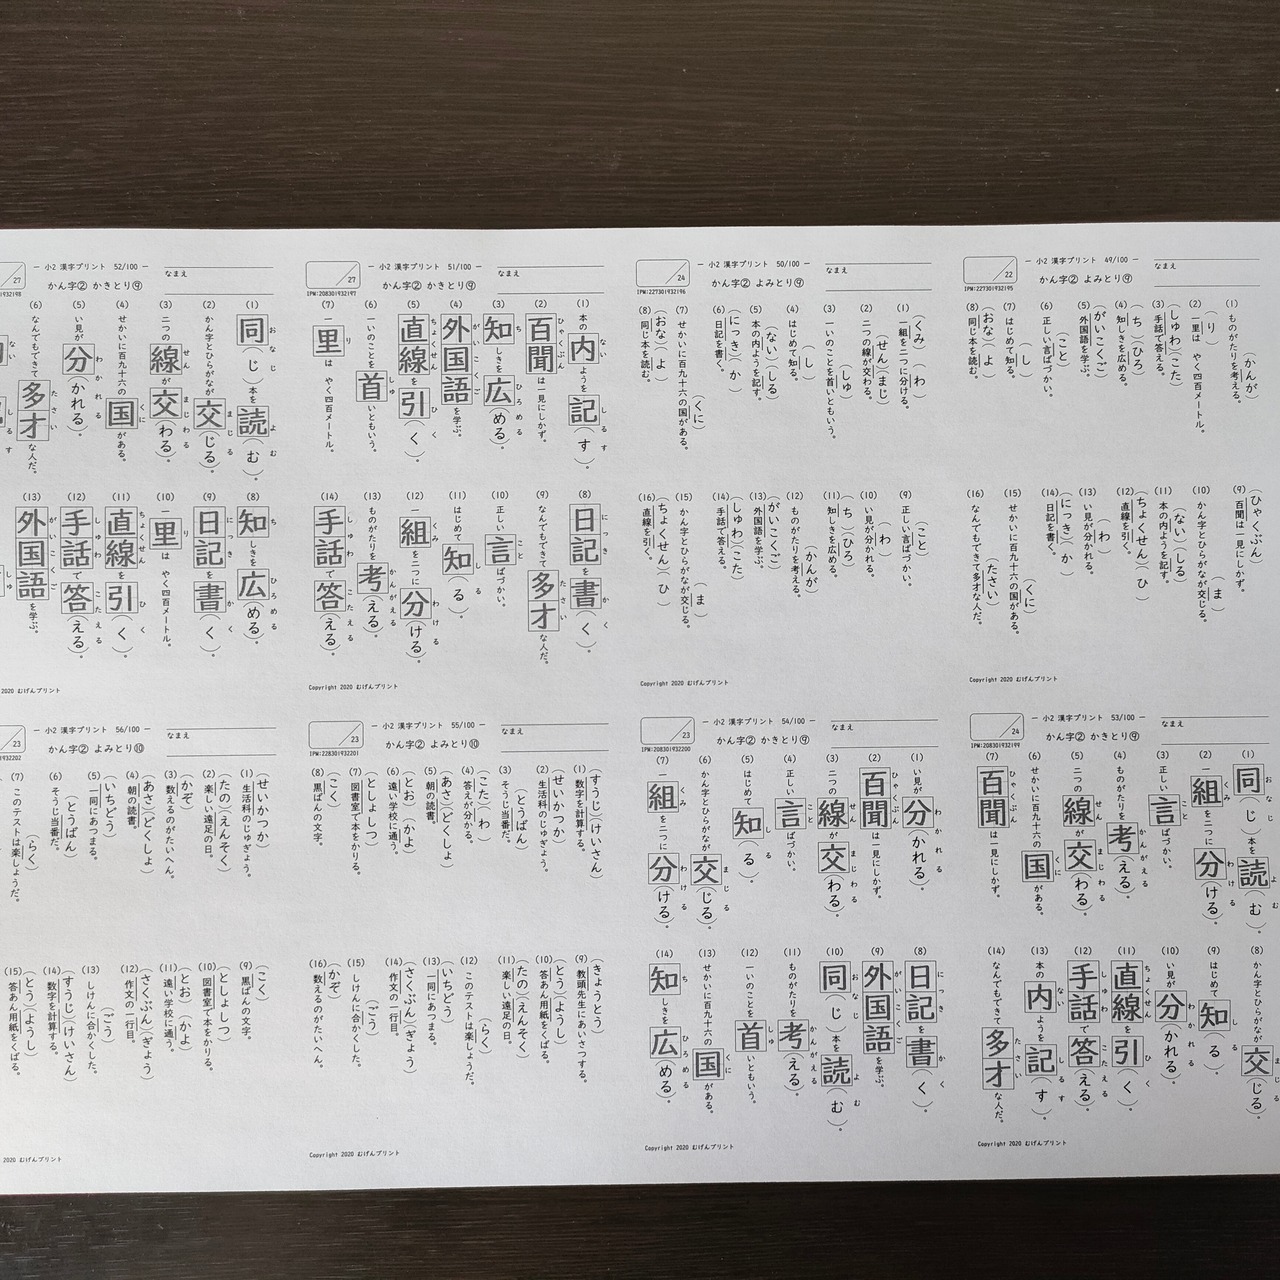 22
IPM:227301932195
− 小2 漢字プリント 49/100 −
かん字② よみとり⑨
なまえ
(かんが)
(1) ものがたりを考える。
(り)
(2) 一里は やく四百メートル。
(しゅわ)(こた)
(3) 手話で答える。
(ち)(ひろ)
(4) 知しきを広める。
(がいこくご)
(5) 外国語を学ぶ。
(こと)
(6) 正しい言ばづかい。
(し)
(7) はじめて知る。
(おな)(よ)
(8) 同じ本を読む。
(ひゃくぶん)
(9) 百聞は一見にしかず。
(ま)
(10) かん字とひらがなが交じる。
(ない)(しる)
(11) 本の内ようを記す。
(ちょくせん)(ひ)
(12) 直線を引く。
(わ)
(13) い見が分かれる。
(にっき)(か)
(14) 日記を書く。
(くに)
(15) せかいに百九十六の国がある。
(たさい)
(16) なんでもできて多才な人だ。
24
IPM:227301932196
− 小2 漢字プリント 50/100 −
かん字② よみとり⑨
なまえ
(くみ)(わ)
(1) 一組を二つに分ける。
(せん)(まじ)
(2) 二つの線が交わる。
(しゅ)
(3) 一いのことを首いともいう。
(し)
(4) はじめて知る。
(ない)(しる)
(5) 本の内ようを記す。
(にっき)(か)
(6) 日記を書く。
(くに)
(7) せかいに百九十六の国がある。
(おな)(よ)
(8) 同じ本を読む。
(こと)
(9) 正しい言ばづかい。
(わ)
(10) い見が分かれる。
(ち)(ひろ)
(11) 知しきを広める。
(かんが)
(12) ものがたりを考える。
(がいこくご)
(13) 外国語を学ぶ。
(しゅわ)(こた)
(14) 手話で答える。
(ま)
(15) かん字とひらがなが交じる。
(ちょくせん)(ひ)
(16) 直線を引く。
Copyright 2020 むげんプリント
27
IPM:208301932197
− 小2 漢字プリント 51/100 −
かん字② かきとり⑨
なまえ
(1) 本の内ようを記(す)。
ない しるす
(2) 百聞は一見にしかず。
ひゃくぶん
(3) 知しきを広(める)。
ち ひろめる
(4) 外国語を学ぶ。
がいこくご
(5) 直線を引(く)。
ちょくせん ひく
(6) 一いのことを首いともいう。
しゅ
(7) 一里は やく四百メートル。
り
(8) 日記を書(く)。
にっき かく
(9) なんでもできて多才な人だ。
たさい
(10) 正しい言ばづかい。
こと
(11) はじめて知(る)。
しる
(12) 一組を二つに分(ける)。
くみ わける
(13) ものがたりを考(える)。
かんがえる
(14) 手話で答(える)。
しゅわ こたえる
Copyright 2020 むげんプリント
27
− 小2 漢字プリント 52/100 −
かん字② かきとり⑨
なまえ
(1) 同(じ)本を読(む)。
おなじ よむ
(2) かん字とひらがなが交(じる)。
まじる
(3) 二つの線が交(わる)。
せん まじわる
(4) せかいに百九十六の国がある。
くに
(5) い見が分(かれる)。
わかれる
(6) なんでもできて多才な人だ。
たさい
(8) 知しきを広(める)。
ち ひろめる
(9) 日記を書(く)。
にっき かく
(10) 一里は やく四百メートル。
り
(11) 直線を引(く)。
ちょくせん ひく
(12) 手話で答(える)。
しゅわ こたえる
(13) 外国語を学ぶ。
がいこくご
2020 むげんプリント
Copyright 2020 むげんプリント
24
IPM:208301932199
− 小2 漢字プリント 53/100 −
かん字② かきとり⑨
なまえ
(1) 同(じ)本を読(む)。
おなじ よむ
(2) 一組を二つに分(ける)。
くみ わける
(3) 正しい言ばづかい。
こと
(4) ものがたりを考(える)。
かんがえる
(5) 二つの線が交(わる)。
せん まじわる
(6) せかいに百九十六の国がある。
くに
(7) 百聞は一見にしかず。
ひゃくぶん
(8) かん字とひらがなが交(じる)。
まじる
(9) はじめて知(る)。
しる
(10) い見が分(かれる)。
わかれる
(11) 直線を引(く)。
ちょくせん ひく
(12) 手話で答(える)。
しゅわ こたえる
(13) 本の内ようを記(す)。
ない しるす
(14) なんでもできて多才な人だ。
たさい
Copyright 2020 むげんプリント
23
IPM:208301932200
− 小2 漢字プリント 54/100 −
かん字② かきとり⑨
なまえ
(1) い見が分(かれる)。
わかれる
(2) 百聞は一見にしかず。
ひゃくぶん
(3) 二つの線が交(わる)。
せん まじわる
(4) 正しい言ばづかい。
こと
(5) はじめて知(る)。
しる
(6) かん字とひらがなが交(じる)。
まじる
(7) 一組を二つに分(ける)。
くみ わける
(8) 日記を書(く)。
にっき かく
(9) 外国語を学ぶ。
がいこくご
(10) 同(じ)本を読(む)。
おなじ よむ
(11) ものがたりを考(える)。
かんがえる
(12) 一いのことを首いともいう。
しゅ
(13) せかいに百九十六の国がある。
くに
(14) 知しきを広(める)。
ち ひろめる
Copyright 2020 むげんプリント
23
IPM:228301932201
− 小2 漢字プリント 55/100 −
かん字② よみとり⑩
なまえ
(すうじ)(けいさん)
(1) 数字を計算する。
(せいかつか)
(2) 生活科のじゅぎょう。
(とうばん)
(3) そうじ当番だ。
(こた)(わ)
(4) 答えが分かる。
(あさ)(どくしょ)
(5) 朝の読書。
(とお)(かよ)
(6) 遠い学校に通う。
(としょしつ)
(7) 図書室で本をかりる。
(こく)
(8) 黒ばんの文字。
(きょうとう)
(9) 教頭先生にあいさつする。
(とう)(ようし)
(10) 答あん用紙をくばる。
(たの)(えんそく)
(11) 楽しい遠足の日。
(らく)
(12) このテストは楽しょうだ。
(いちどう)
(13) 一同にあつまる。
(さくぶん)(ぎょう)
(14) 作文の一行目。
(ごう)
(15) しけんに合かくした。
(かぞ)
(16) 数えるのがたいへん。
Copyright 2020 むげんプリント
23
− 小2 漢字プリント 56/100 −
かん字② よみとり⑩
なまえ
(せいかつか)
(1) 生活科のじゅぎょう。
(たの)(えんそく)
(2) 楽しい遠足の日。
(かぞ)
(3) 数えるのがたいへん。
(あさ)(どくしょ)
(4) 朝の読書。
(いちどう)
(5) 一同にあつまる。
(とうばん)
(6) そうじ当番だ。
(らく)
(7) このテストは楽しょうだ。
(こく)
(9) 黒ばんの文字。
(としょしつ)
(10) 図書室で本をかりる。
(とお)(かよ)
(11) 遠い学校に通う。
(さくぶん)(ぎょう)
(12) 作文の一行目。
(ごう)
(13) しけんに合かくした。
(すうじ)(けいさん)
(14) 数字を計算する。
(とう)(ようし)
(15) 答あん用紙をくばる。
2020 むげんプリント